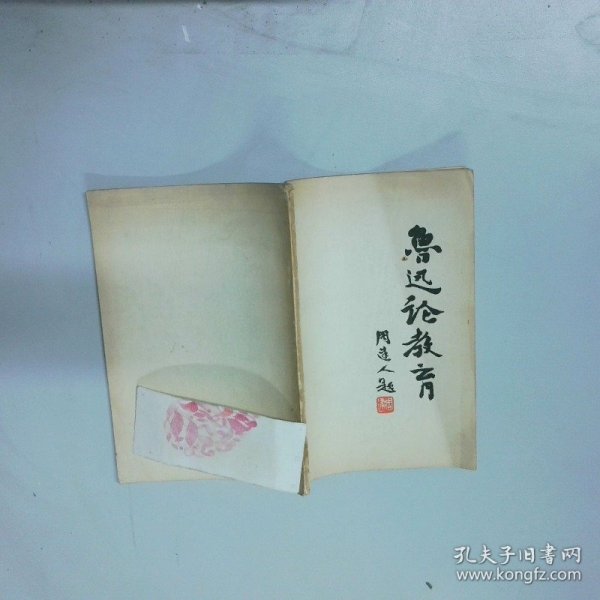 鲁迅论教育
周建人题
孔夫子旧书网
www.kongfz.com